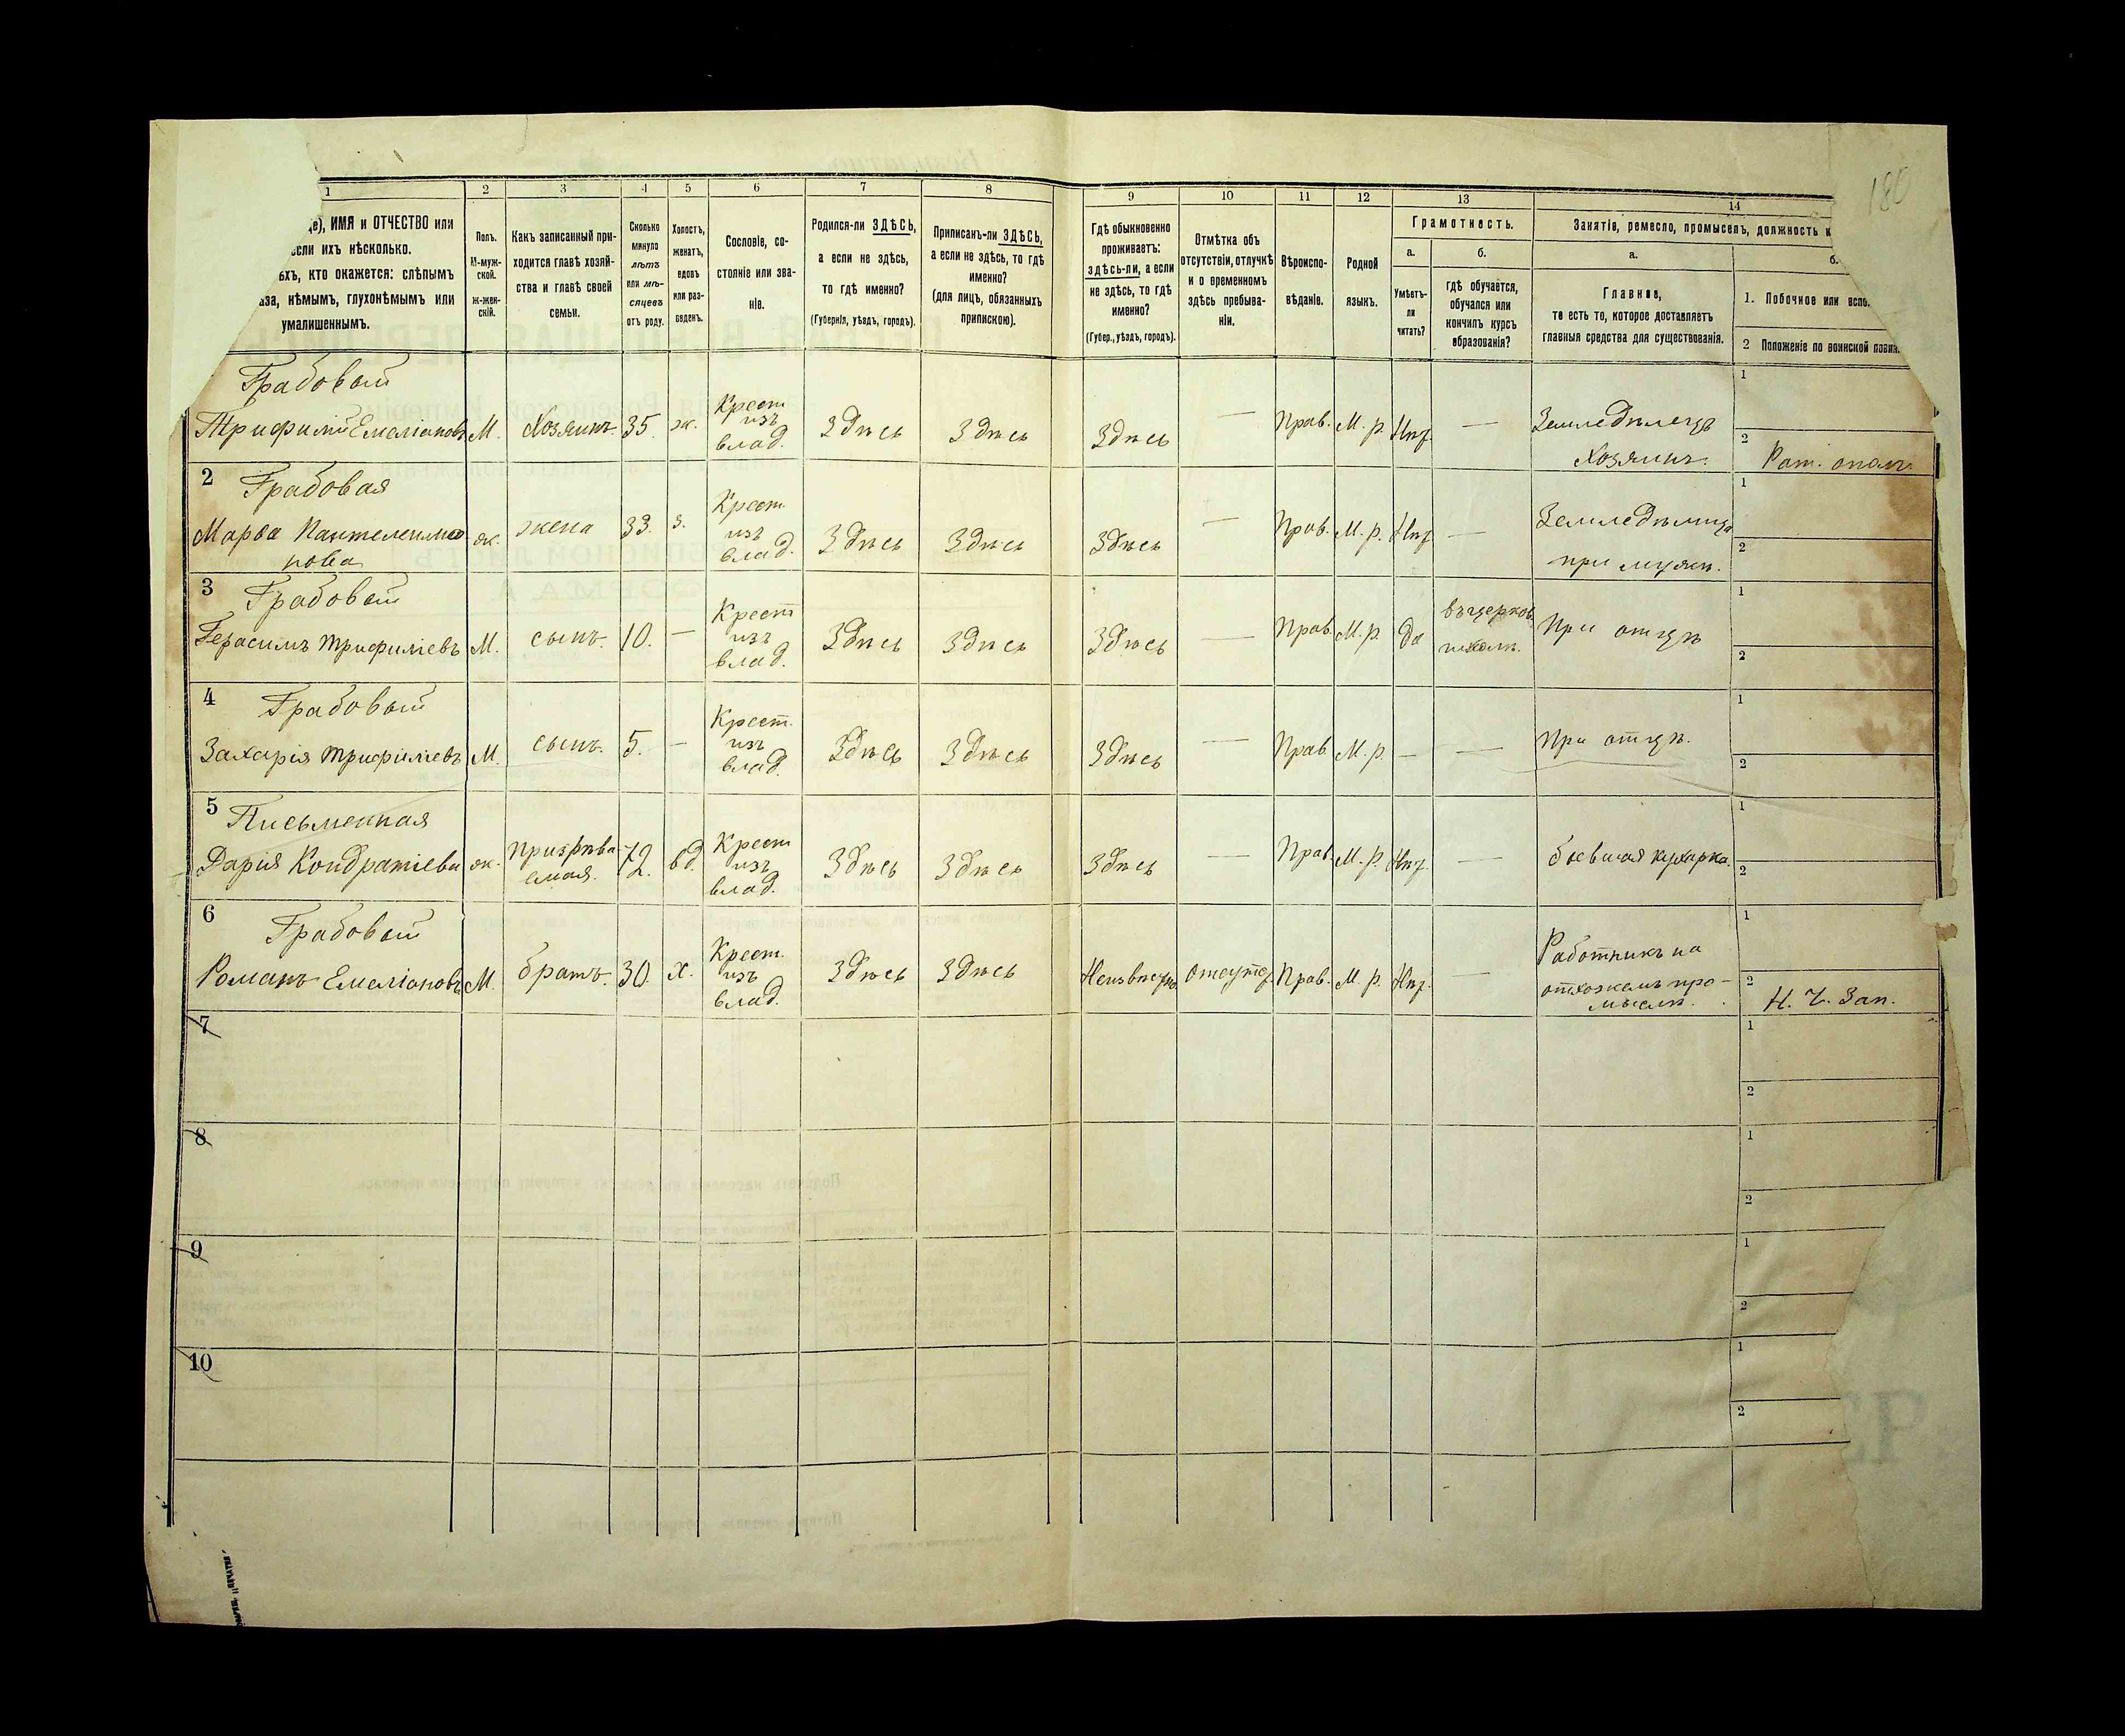 180
1 2 3 4 5 6 7 8 9 10 11 12 13 14
де), ИМЯ и ОТЧЕСТВО или
если ихъ нѣсколько.
ыхъ, кто окажется: слѣпымъ
аза, нѣмымъ, глухонѣмымъ или
умалишеннымъ.
Полъ.
М-муж-
ской.
ж-жен-
скій.
Какъ записанный при-
ходится главѣ хозяй-
ства и главѣ своей
семьи.
Сколько
минуло
лѣтъ
или мѣ-
сяцевъ
отъ роду.
Холостъ,
женатъ,
вдовъ
или раз-
веденъ.
Сословіе, со-
стояніе или зва-
ніе.
Родился-ли ЗДѢСЬ,
а если не здѣсь,
то гдѣ именно?
(Губернія, уѣздъ, городъ).
Приписанъ-ли ЗДѢСЬ,
а если не здѣсь, то гдѣ
именно?
(для лицъ, обязанныхъ
припискою).
Гдѣ обыкновенно
проживаетъ:
здѣсь-ли, а если
не здѣсь, то гдѣ
именно?
(Губер., уѣздъ, городъ).
Отмѣтка объ
отсутствіи, отлучкѣ
и о временномъ
здѣсь пребыва-
ніи.
Вѣроиспо-
вѣданіе.
Родной
языкъ.
Грамотность.
а.
Умѣетъ-
ли
читать?
б.
гдѣ обучается,
обучался или
кончилъ курсъ
образованія?
Занятіе, ремесло, промыселъ, должность и
а.
Главное,
то есть то, которое доставляетъ
главныя средства для существованія.
б.
1. Побочное или вспо
2 Положеніе по воинской повин.
Грабовый
Трифилій Емеліановъ М. Хозяинъ 35. ж. Крест изъ влад. Здѣсь Здѣсь Здѣсь — Прав. М. р. Нѣт — Земледѣлецъ Хозяинъ. 1
2 Рат. ополч.
2 Грабовая
Марфа Пантелеимо
нова ж. жена 33. з. Крест. изъ влад. Здѣсь Здѣсь Здѣсь — Прав. М. р. Нѣт — Земледѣлица при мужѣ. 1
2
3 Грабовый
Герасимъ Трифиліевъ М. сынъ. 10. — Крест изъ влад. Здѣсь Здѣсь Здѣсь — Прав. М. р. Да въ церков. школѣ. При отцѣ 1
2
4 Грабовый
Захарія Трифиліевъ М. сынъ. 5. — Крест. изъ влад. Здѣсь Здѣсь Здѣсь — Прав. М. р. — — При отцѣ. 1
2
5 Письменная
Дарія Кондратіева ж. призрѣва
емая. 72. вд. Крест изъ влад. Здѣсь Здѣсь Здѣсь — Прав. М. р. Нѣт. — бывшая кухарка. 1
2
6 Грабовый
Романъ Емеліановъ М. братъ. 30. х. Крест. изъ влад. Здѣсь Здѣсь Неизвѣстно отсутс. Прав. М. р. Нѣт. — Работникъ на
отхожемъ про-
мыслѣ. 1
2 Н. Ч. Зап.
7 1
2
8 1
2
9 1
2
10 1
2